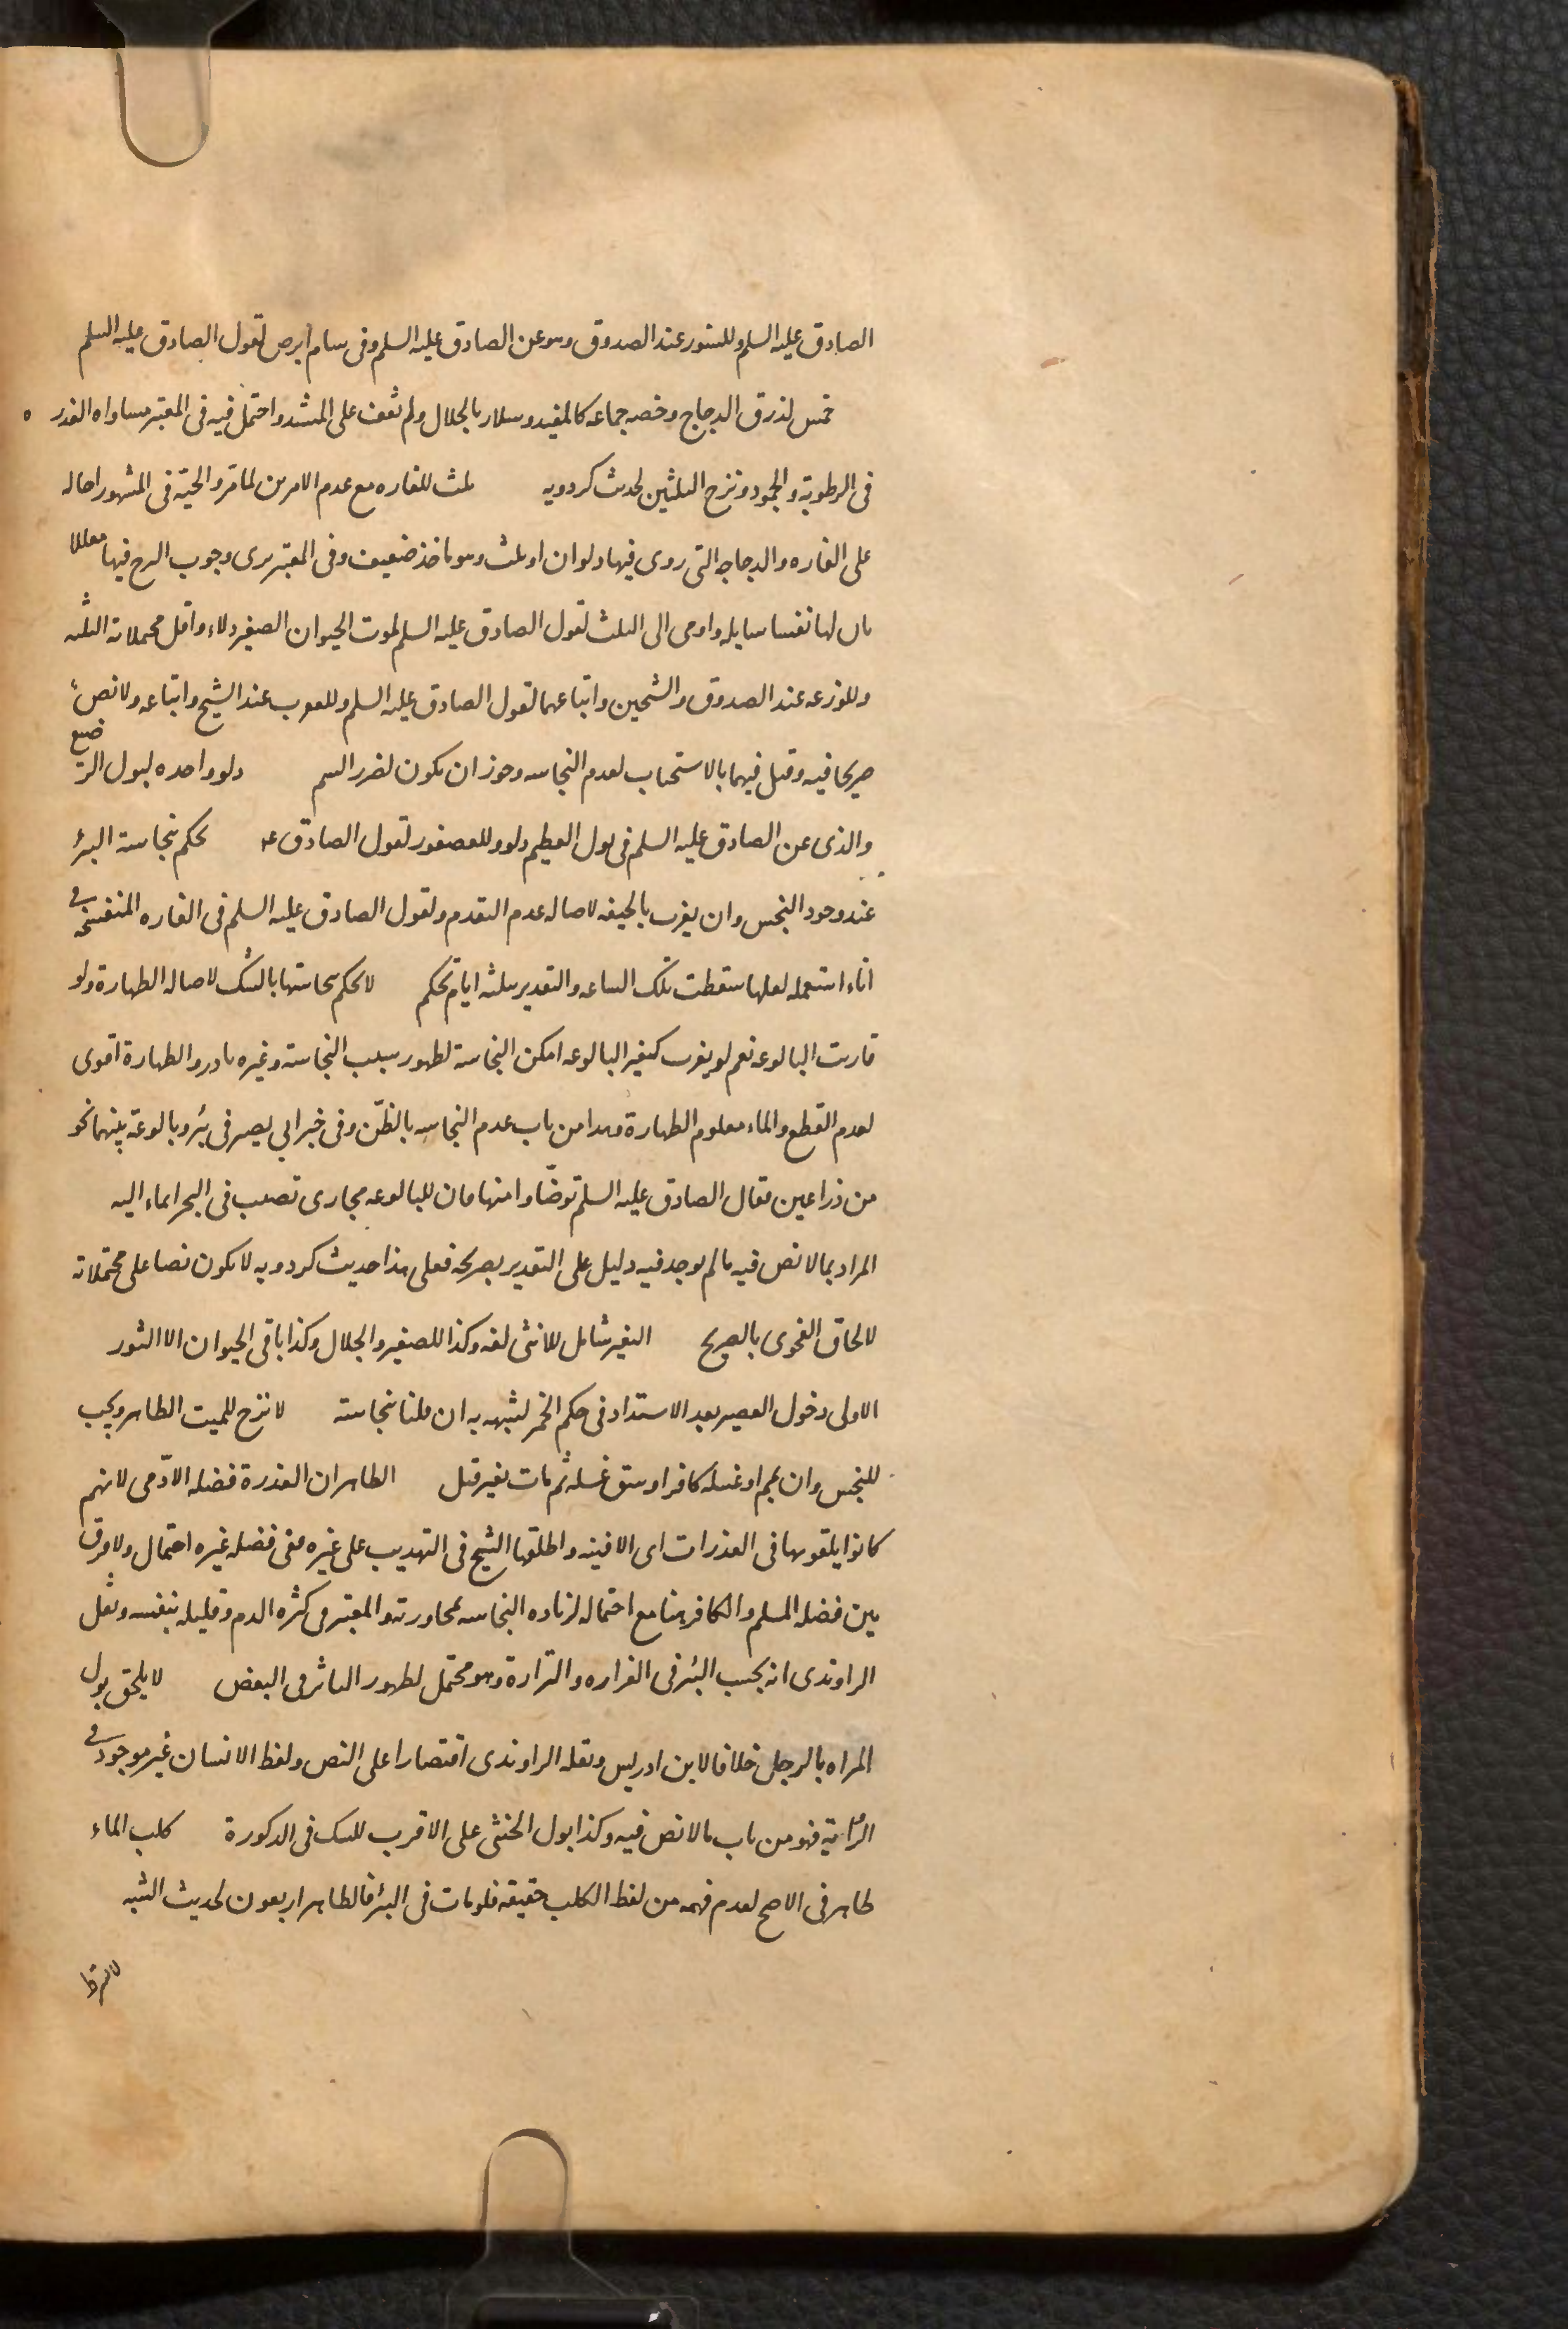 الصادق عليه السلم وللسنور عند الصدوق وهو عن الصادق عليه السلم وفى سام ابرص لقول الصادق عليه السلم
خمس لذرق الدجاج وخصه جماعه كالمفيد وسلار بالجلال ولم نقف على المسند واحتمل فيه فى المعتبر مساواه العذره
فى الرطوبة والجمود ونزح الثلثين لحديث كردويه ثلث للفاره مع عدم الامرين لما مر والحية فى المشهور احاله
على الفاره والدجاجه التى روى فيها دلوان او ثلث وهو ماخذ ضعيف وفى المعتبر يرى وجوب النزح فيها معللا
بان لها نفسا سايله واومى الى الثلث لقول الصادق عليه السلم لموت الحيوان الصغير دلاء واقل محملاته الثلثه
وللوزغه عند الصدوق والشيخين واتباعهما لقول الصادق عليه السلم وللعقرب عند الشيخ واتباعه ولا نص
صريحا فيه وقيل فيهما بالاستحباب لعدم النجاسه وجوز ان يكون لضرر السم دلو واحده لبول الرضيع
والذى عن الصادق عليه السلم فى بول الفطيم دلو وللعصفور لقول الصادق ع يحكم بنجاسة البئر
عند وجود النجس وان يغرب بالجيفه لاصاله عدم التقدم ولقول الصادق عليه السلم فى الفاره المنفسخه فى
اناء استعمله لعلها سقطت تلك الساعه والتقدير بثلثه ايام تحكم لا يحكم بنجاستها بالشك لاصاله الطهارة ولو
قاربت البالوعه نعم لو يغرب كيغير البالوعه امكن النجاسة لظهور سبب النجاسة وغيره نادر والطهارة اقوى
لعدم القطع والماء معلوم الطهارة وهذا من باب عدم النجاسه بالظن وفى خبر ابى بصير فى بئر وبالوعة بينهما نحو
من ذراعين فقال الصادق عليه السلم توضاوا منها فان للبالوعه مجارى تصب فى البحر ايماء اليه
المراد بما لا نص فيه ما لم يوجد فيه دليل على التقدير بصريحه فعلى هذا حديث كردويه لا يكون نصا على محتملاته
لالحاق الفحوى بالصريح البعير شامل للانثى لغه وكذا للصغير والجلال وكذا باقى الحيوان الا الثور
الاولى دخول العصير بعد الاشتداد فى حكم الخمر لشبهه به ان قلنا بنجاسته لا نزح للميت الطاهر ويجب
للنجس وان يمم او غسله كافر او سبق غسله ثم مات بغير قتل الظاهر ان العذرة فضله الآدمى لانهم
كانوا يلقونها فى العذرات اى الافنيه واطلقها الشيخ فى التهذيب على غيره ففى فضله غيره احتمال ولا فرق
بين فضله المسلم والكافر هنا مع احتماله لزياده النجاسه بمجاورته والمعتبر فى كثره الدم وقليله بنفسه ونقل
الراوندى انه بحسب البئر فى الغزاره والنزارة وهو محتمل لظهور التاثر فى البعض لا يلحق بول
المراه بالرجل خلافا لابن ادريس ونقله الراوندى اقتصارا على النص ولفظ الانسان غير موجود فى
الرواية فهو من باب ما لا نص فيه وكذا بول الخنثى على الاقرب للشك فى الذكورة كلب الماء
طاهر فى الاصح لعدم فهمه من لفظ الكلب حقيقه فلو مات فى البئر فالظاهر اربعون لحديث الشبه
لا يشترط